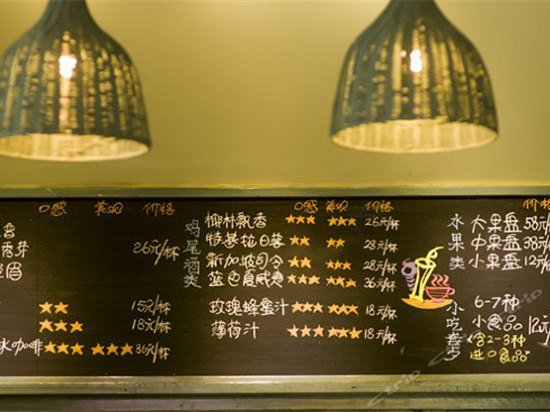 口感 美观 价格
香
香芽 26元/杯
★★ 15元/杯
★★★ 18元/杯
冰咖啡 ★★★ ★★★ 36元/杯
鸡尾酒类
口感 美观 价格
椰林飘香 ★★★ ★★★ 26元/杯
特基拉日暮 ★★ ★★ 28元/杯
新加坡司令 ★★ ★★ 28元/杯
蓝色夏威夷 ★★★ ★★★ 36元/杯
玫瑰蜂蜜汁 ★★★ ★★★ 18元/杯
薄荷汁 ★★★ ★★★ 18元/杯
水果类
价格
大果盘 58元
中果盘 38元
小果盘 12元
小吃套
6-7种
小食品 12元
含2-3种
进口食品